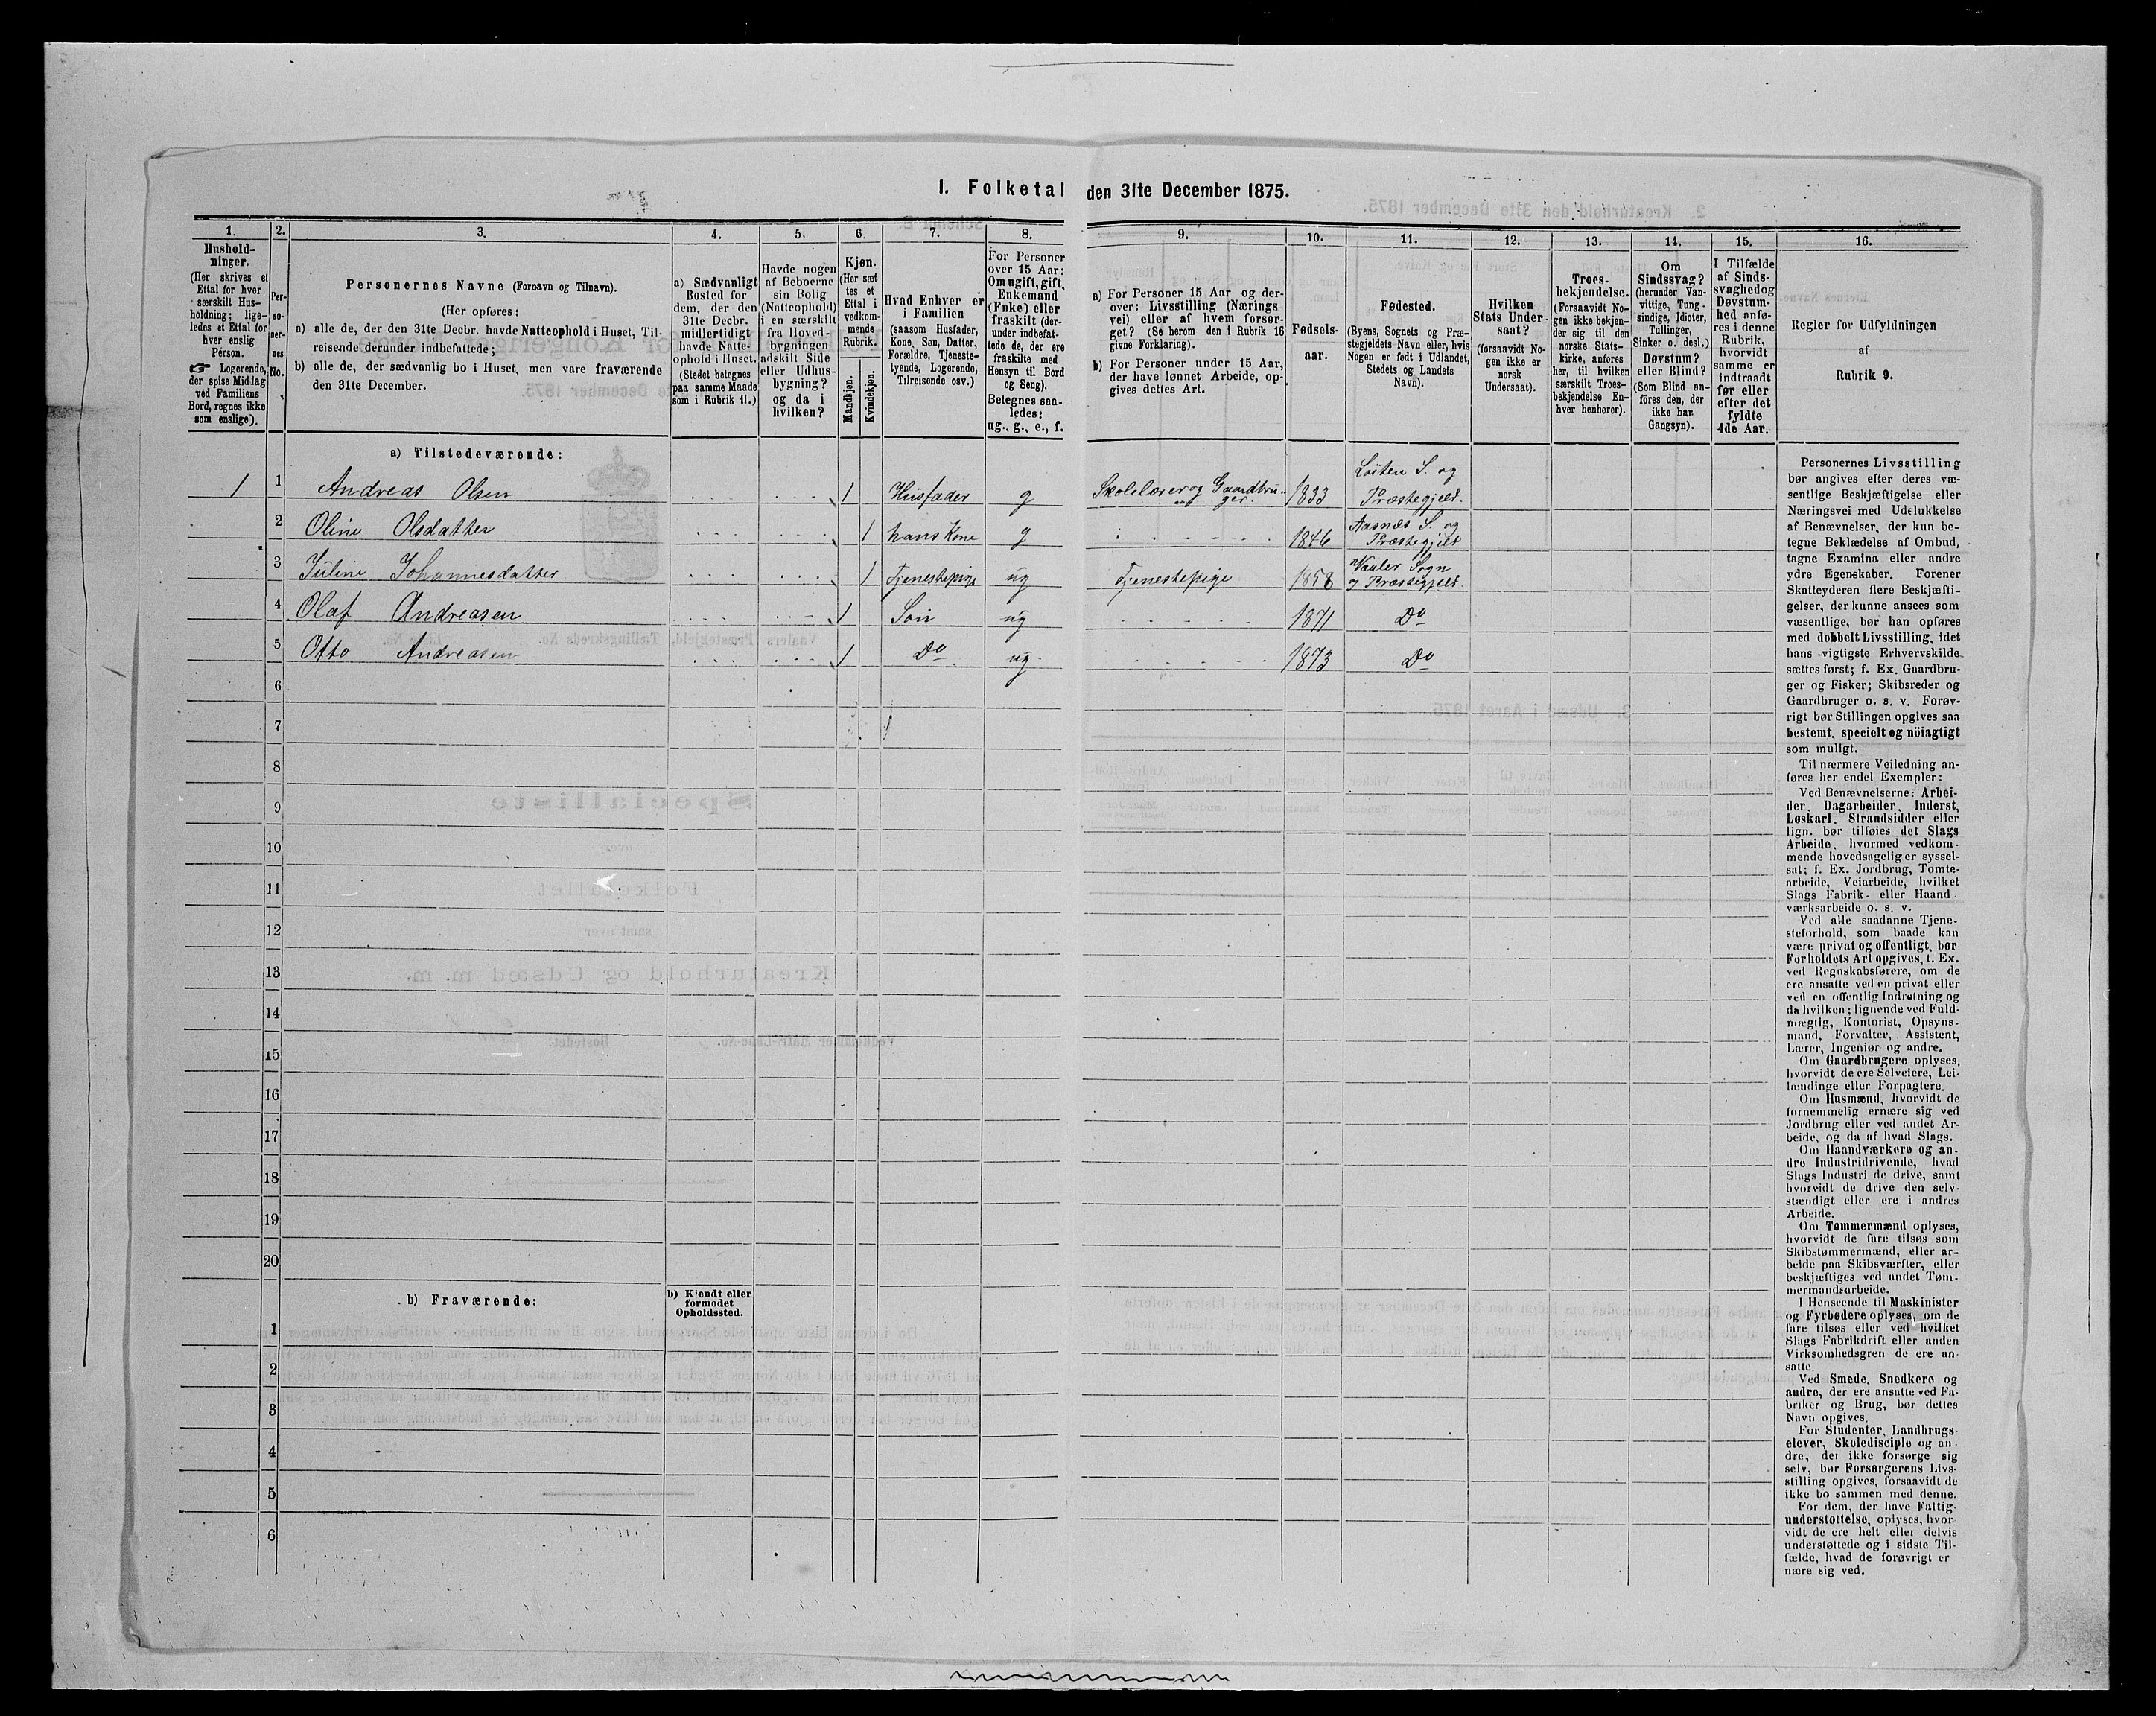 I. Folketal den 31te December 1875.
1.
Hushold-
ninger.
(Her skrives et
Ettal for hver
særskilt Hus-
holdning; lige-
ledes et Ettal for
hver enslig
Person.
☞ Logerende,
der spise Middag
ved Familiens
Bord, regnes ikke
som enslige).
2.
Per-
so-
ner-
nes
No.
3.
Personernes Navne (Fornavn og Tilnavn).
(Her opføres:
a) alle de, der den 31te Decbr. havde Natteophold i Huset, Til-
reisende derunder indbefattede;
b) alle de, der sædvanlig bo i Huset, men vare fraværende
den 31te December.
4.
a) Sædvanligt
Bosted for
dem, der den
31te Decbr.
midlertidigt
havde Natte-
ophold i Huset.
(Stedet betegnes
paa samme Maade
som i Rubrik 11.)
5.
Havde nogen
af Beboerne
sin Bolig
(Natteophold)
i en særskilt
fra Hoved-
bygningen
adskilt Side
eller Udhus-
bygning?
og da i
hvilken?
6.
Kjøn.
(Her sæt
tes et
Ettal i
vedkom-
mende
Rubrik.
Mandkjøn.
Kvindekjøn.
7.
Hvad Enhver er
i Familien
(saasom Husfader,
Kone, Søn, Datter,
Forældre, Tjeneste-
tyende, Logerende,
Tilreisende osv.)
8.
For Personer
over 15 Aar:
Om ugift, gift,
Enkemand
(Enke) eller
fraskilt (der-
under indbefat-
tede de, der ere
fraskilte med
Hensyn til Bord
og Seng).
Betegnes saa-
ledes:
ug., g., e., f.
9.
a) For Personer 15 Aar og der-
over: Livsstilling (Nærings
vei) eller af hvem forsør-
get? (Se herom den i Rubrik 16
givne Forklaring).
b) For Personer under 15 Aar,
der have lønnet Arbeide, op-
gives dettes Art.
10.
Fødsels-
aar.
11.
Fødested.
(Byens, Sognets og Præ-
stegjeldets Navn eller, hvis
Nogen er født i Udlandet,
Stedets og Landets
Navn).
12.
Hvilken
Stats Under-
saat?
(forsaavidt No-
gen ikke er
norsk
Undersaat).
13.
Troes-
bekjendelse.
(Forsaavidt No-
gen ikke bekjen-
der sig til den
norske Stats-
kirke, anføres
her, til hvilken
særskilt Troes-
bekjendelse En-
hver henhører).
14.
Om
Sindssvag?
(herunder Van-
vittige, Tung-
sindige, Idioter,
Tullinger,
Sinker o. desl.)
Døvstum?
eller Blind?
(Som Blind an-
føres den, der
ikke har
Gangsyn).
15.
I Tilfælde
af Sinds-
svaghed og
Døvstum-
hed anfø-
res i denne
Rubrik,
hvorvidt
samme er
indtraadt
før eller
efter det
fyldte
4de Aar.
16.
Regler for Udfyldningen
af
Rubrik 9.
a) Tilstedeværende:
1 1 Andreas Olsen 1 Husfader g Skolelærer og Gaardbru-
ger. 1833 Löiten S. og
Præstegjeld.
2 Oline Olsdatter 1 hans Kone g 1846 Aasnæs S. og
Præstegjeld
3 Juline Johannesdatter 1 Tjenestepige ug Tjenestepige 1858 Vaaler Sogn
og Præstegjeld.
4 Olaf Andreasen 1 Sön ug 1871 Do
5 Otto Andreasen 1 Do ug 1873 Do
6
7
8
9
10
11
12
13
14
15
16
17
18
19
20
b) Fraværende:
b) Kjendt eller
formodet
Opholdssted.
1
2
3
4
5
6
Personernes Livsstilling
bør angives efter deres væ-
sentlige Beskjæftigelse eller
Næringsvei med Udelukkelse
af Benævnelser, der kun be-
tegne Beklædelse af Ombud,
tagne Examina eller andre
ydre Egenskaber. Forener
Skatteyderen flere Beskjæfti-
gelser, der kunne ansees som
væsentlige, bør han opføres
med dobbelt Livsstilling, idet
hans vigtigste Erhvervskilde
sættes først; f. Ex. Gaardbru-
ger og Fisker; Skibsreder og
Gaardbruger o. s. v. Forøv-
rigt bør Stillingen opgives saa
bestemt, specielt og nöiagtigt
som muligt.
Til nærmere Veiledning an-
føres her endel Exempler:
Ved Benævnelserne: Arbei-
der, Dagarbeider, Inderst,
Løskarl, Strandsidder eller
lign. bør tilføies det Slags
Arbeide, hvormed vedkom-
mende hovedsagelig er syssel-
sat; f. Ex. Jordbrug, Tomte-
arbeide, Veiarbeide, hvilket
Slags Fabrik- eller Haand-
værksarbeide o. s. v.
Ved alle saadanne Tjene-
steforhold, som baade kan
være privat og offentligt, bør
Forholdets Art opgives, f. Ex.
ved Regnskabsførere, om de
ere ansatte ved en privat eller
ved en offentlig Indretning og
da hvilken; lignende ved Fuld-
mægtig, Kontorist, Opsyns-
mand, Forvalter, Assistent,
Lærer, Ingeniør og andre.
Om Gaardbrugere oplyses,
hvorvidt de ere Selveiere, Lei-
lændinge eller Forpagtere.
Om Husmænd, hvorvidt de
fornemmelig ernære sig ved
Jordbrug eller ved andet Ar-
beide, og da af hvad Slags.
Om Haandværkere og an-
dre Industridrivende, hvad
Slags Industri de drive, samt
hvorvidt de drive den selv-
stændigt eller ere i andres
Arbeide.
Om Tømmermænd oplyses,
hvorvidt de fare tilsøs som
Skibstømmermænd, eller ar-
beide paa Skibsværfter, eller
beskjæftiges ved andet Tøm-
mermandsarbeide.
I Henseende til Maskinister
og Fyrbødere oplyses, om de
fare tilsøs eller ved hvilket
Slags Fabrikdrift eller anden
Virksomhedsgren de ere an-
satte.
Ved Smede, Snedkere og
andre, der ere ansatte ved Fa-
briker og Brug, bør dettes
Navn opgives.
For Studenter, Landbrugs-
elever, Skoledisciple og an-
dre, der ikke forsørge sig
selv, bør Forsørgerens Livs-
stilling opgives, forsaavidt de
ikke bo sammen med denne.
For dem, der have Fattig-
understøttelse, oplyses, hvor-
vidt de ere helt eller delvis
understøttede og i sidste Til-
fælde, hvad de forøvrigt er
nære sig ved.